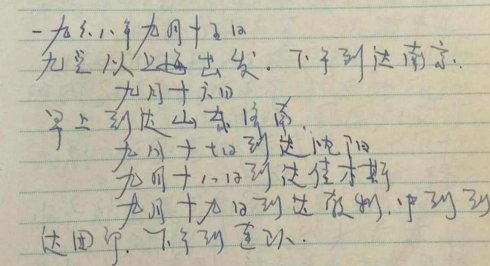 一九六八年九月十五日
九点从上海出发。下午到达南京。
九月十六日
早上到达山东济南
九月十七日到达沈阳
九月十八日到达佳木斯
九月十九日到达 中 到
达团部。下午到连队。